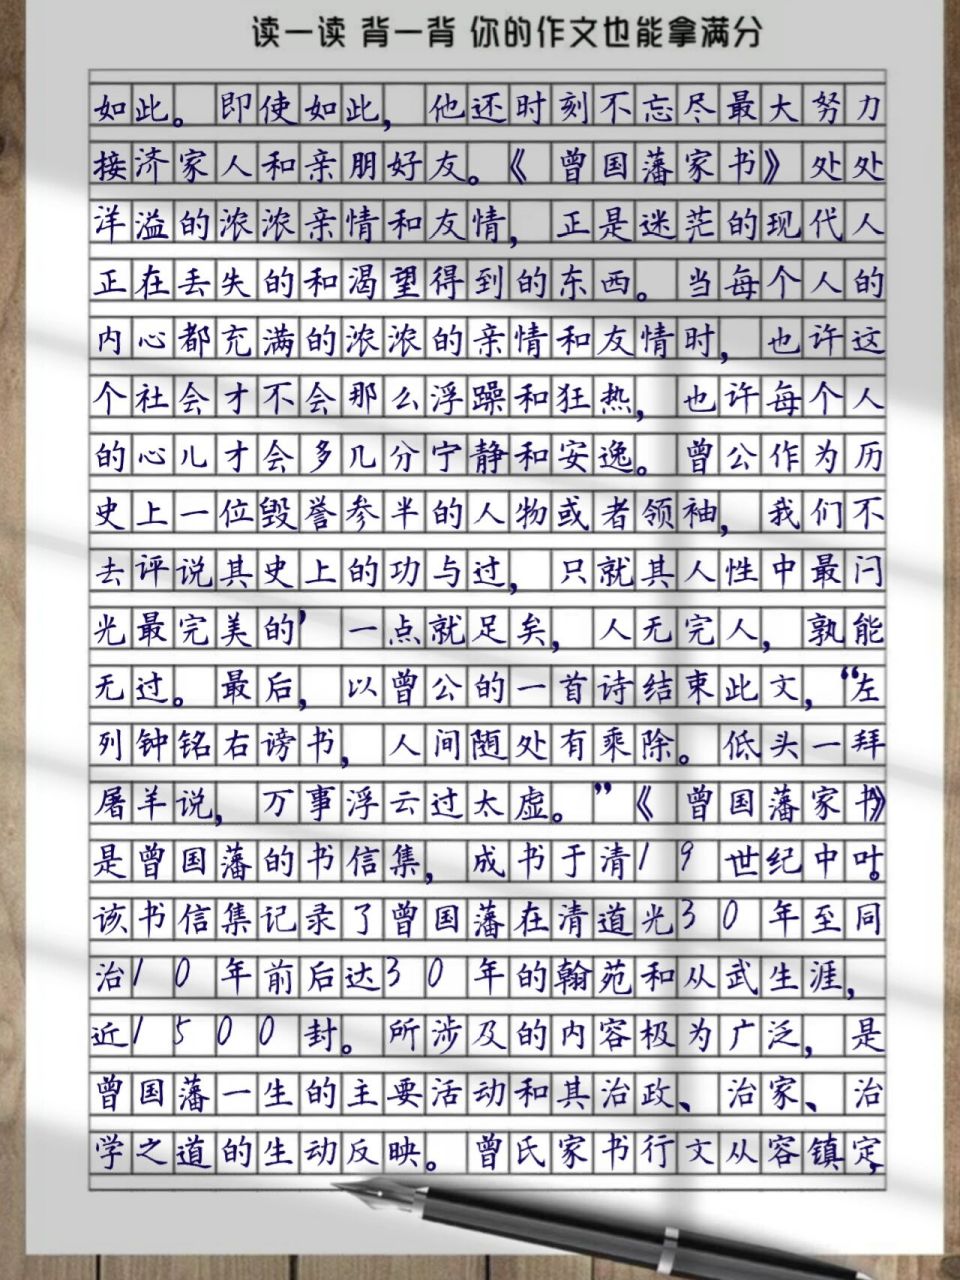 读一读 背一背 你的作文也能拿满分
如此。即使如此，他还时刻不忘尽最大努力
接济家人和亲朋好友。《曾国藩家书》处处
洋溢的浓浓亲情和友情，正是迷茫的现代人
正在丢失的和渴望得到的东西。当每个人的
内心都充满的浓浓的亲情和友情时，也许这
个社会才不会那么浮躁和狂热，也许每个人
的心儿才会多几分宁静和安逸。曾公作为历
史上一位毁誉参半的人物或者领袖，我们不
去评说其史上的功与过，只就其人性中最闪
光最完美的’一点就足矣，人无完人，孰能
无过。最后，以曾公的一首诗结束此文，“左
列钟铭右谤书，人间随处有乘除。低头一拜
屠羊说，万事浮云过太虚。”《曾国藩家书》
是曾国藩的书信集，成书于清19世纪中叶。
该书信集记录了曾国藩在清道光30年至同
治10年前后达30年的翰苑和从武生涯，
近1500封。所涉及的内容极为广泛，是
曾国藩一生的主要活动和其治政、治家、治
学之道的生动反映。曾氏家书行文从容镇定，